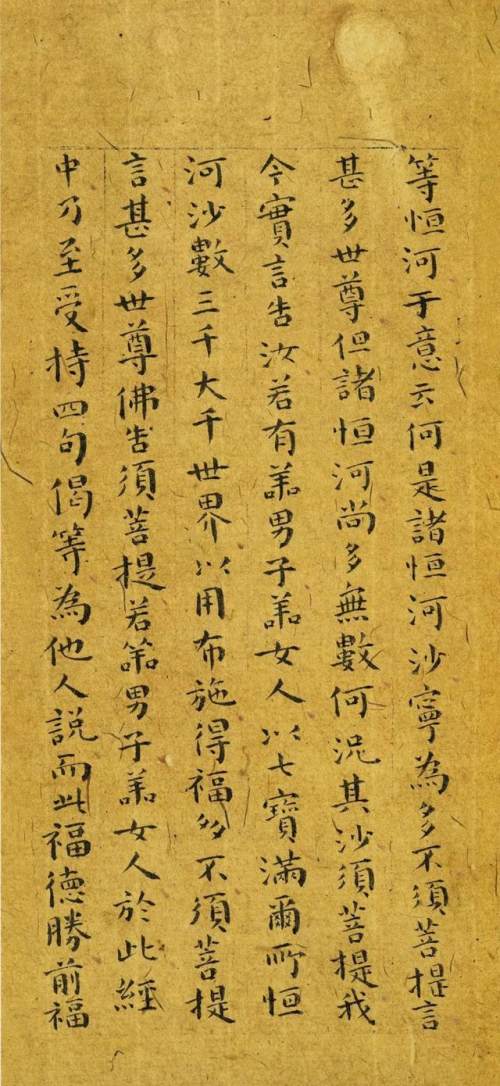 等恒河于意云何是諸恒河沙寧為多不須菩提言
甚多世尊但諸恒河尚多無數何況其沙須菩提我
今實言告汝若有善男子善女人以七寶滿爾所恒
河沙數三千大千世界以用布施得福多不須菩提
言甚多世尊佛告須菩提若善男子善女人於此經
中乃至受持四句偈等為他人說而此福德勝前福